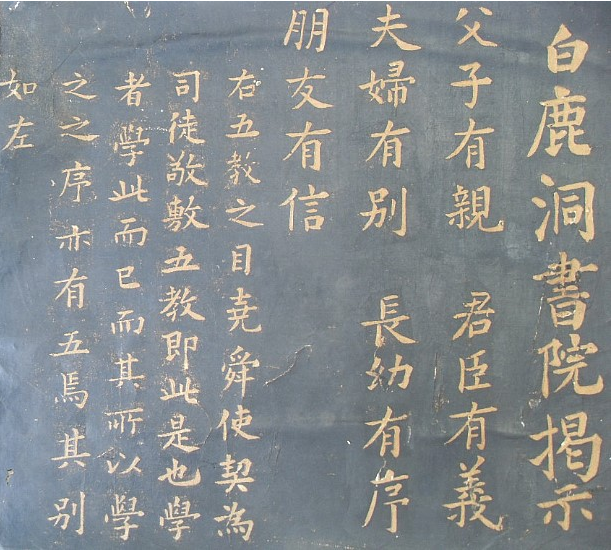 白鹿洞書院揭示
父子有親 君臣有義
夫婦有別 長幼有序
朋友有信
右五教之目堯舜使契為
司徒敬敷五教即此是也學
者學此而已而其所以學
之之序亦有五焉其別
如左